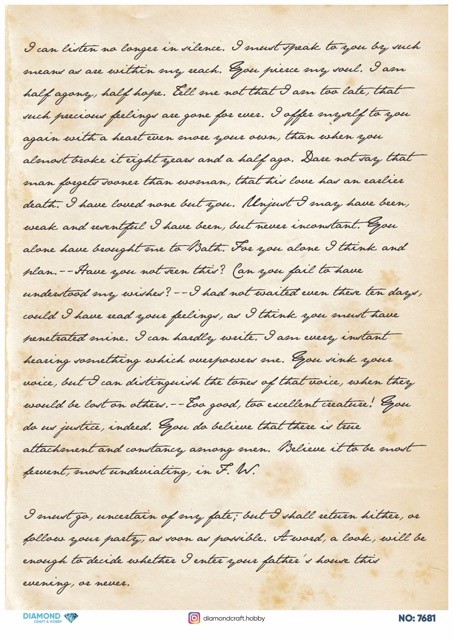 I can listen no longer in silence. I must speak to you by such
means as are within my reach. You pierce my soul. I am
half agony, half hope. Tell me not that I am too late, that
such precious feelings are gone for ever. I offer myself to you
again with a heart even more your own, than when you
almost broke it eight years and a half ago. Dare not say that
man forgets sooner than woman, that his love has an earlier
death. I have loved none but you. Unjust I may have been,
weak and resentful I have been, but never inconstant. You
alone have brought me to Bath. For you alone I think and
plan.--Have you not seen this? Can you fail to have
understood my wishes?--I had not waited even these ten days,
could I have read your feelings, as I think you must have
penetrated mine. I can hardly write. I am every instant
hearing something which overpowers me. You sink your
voice, but I can distinguish the tones of that voice, when they
would be lost on others.--Too good, too excellent creature! You
do us justice, indeed. You do believe that there is true
attachment and constancy among men. Believe it to be most
fervent, most undeviating, in F. W.
I must go, uncertain of my fate; but I shall return hither, or
follow your party, as soon as possible. A word, a look, will be
enough to decide whether I enter your father's house this
evening, or never.
DIAMOND
CRAFT & HOBBY
diamondcraft.hobby
NO: 7681